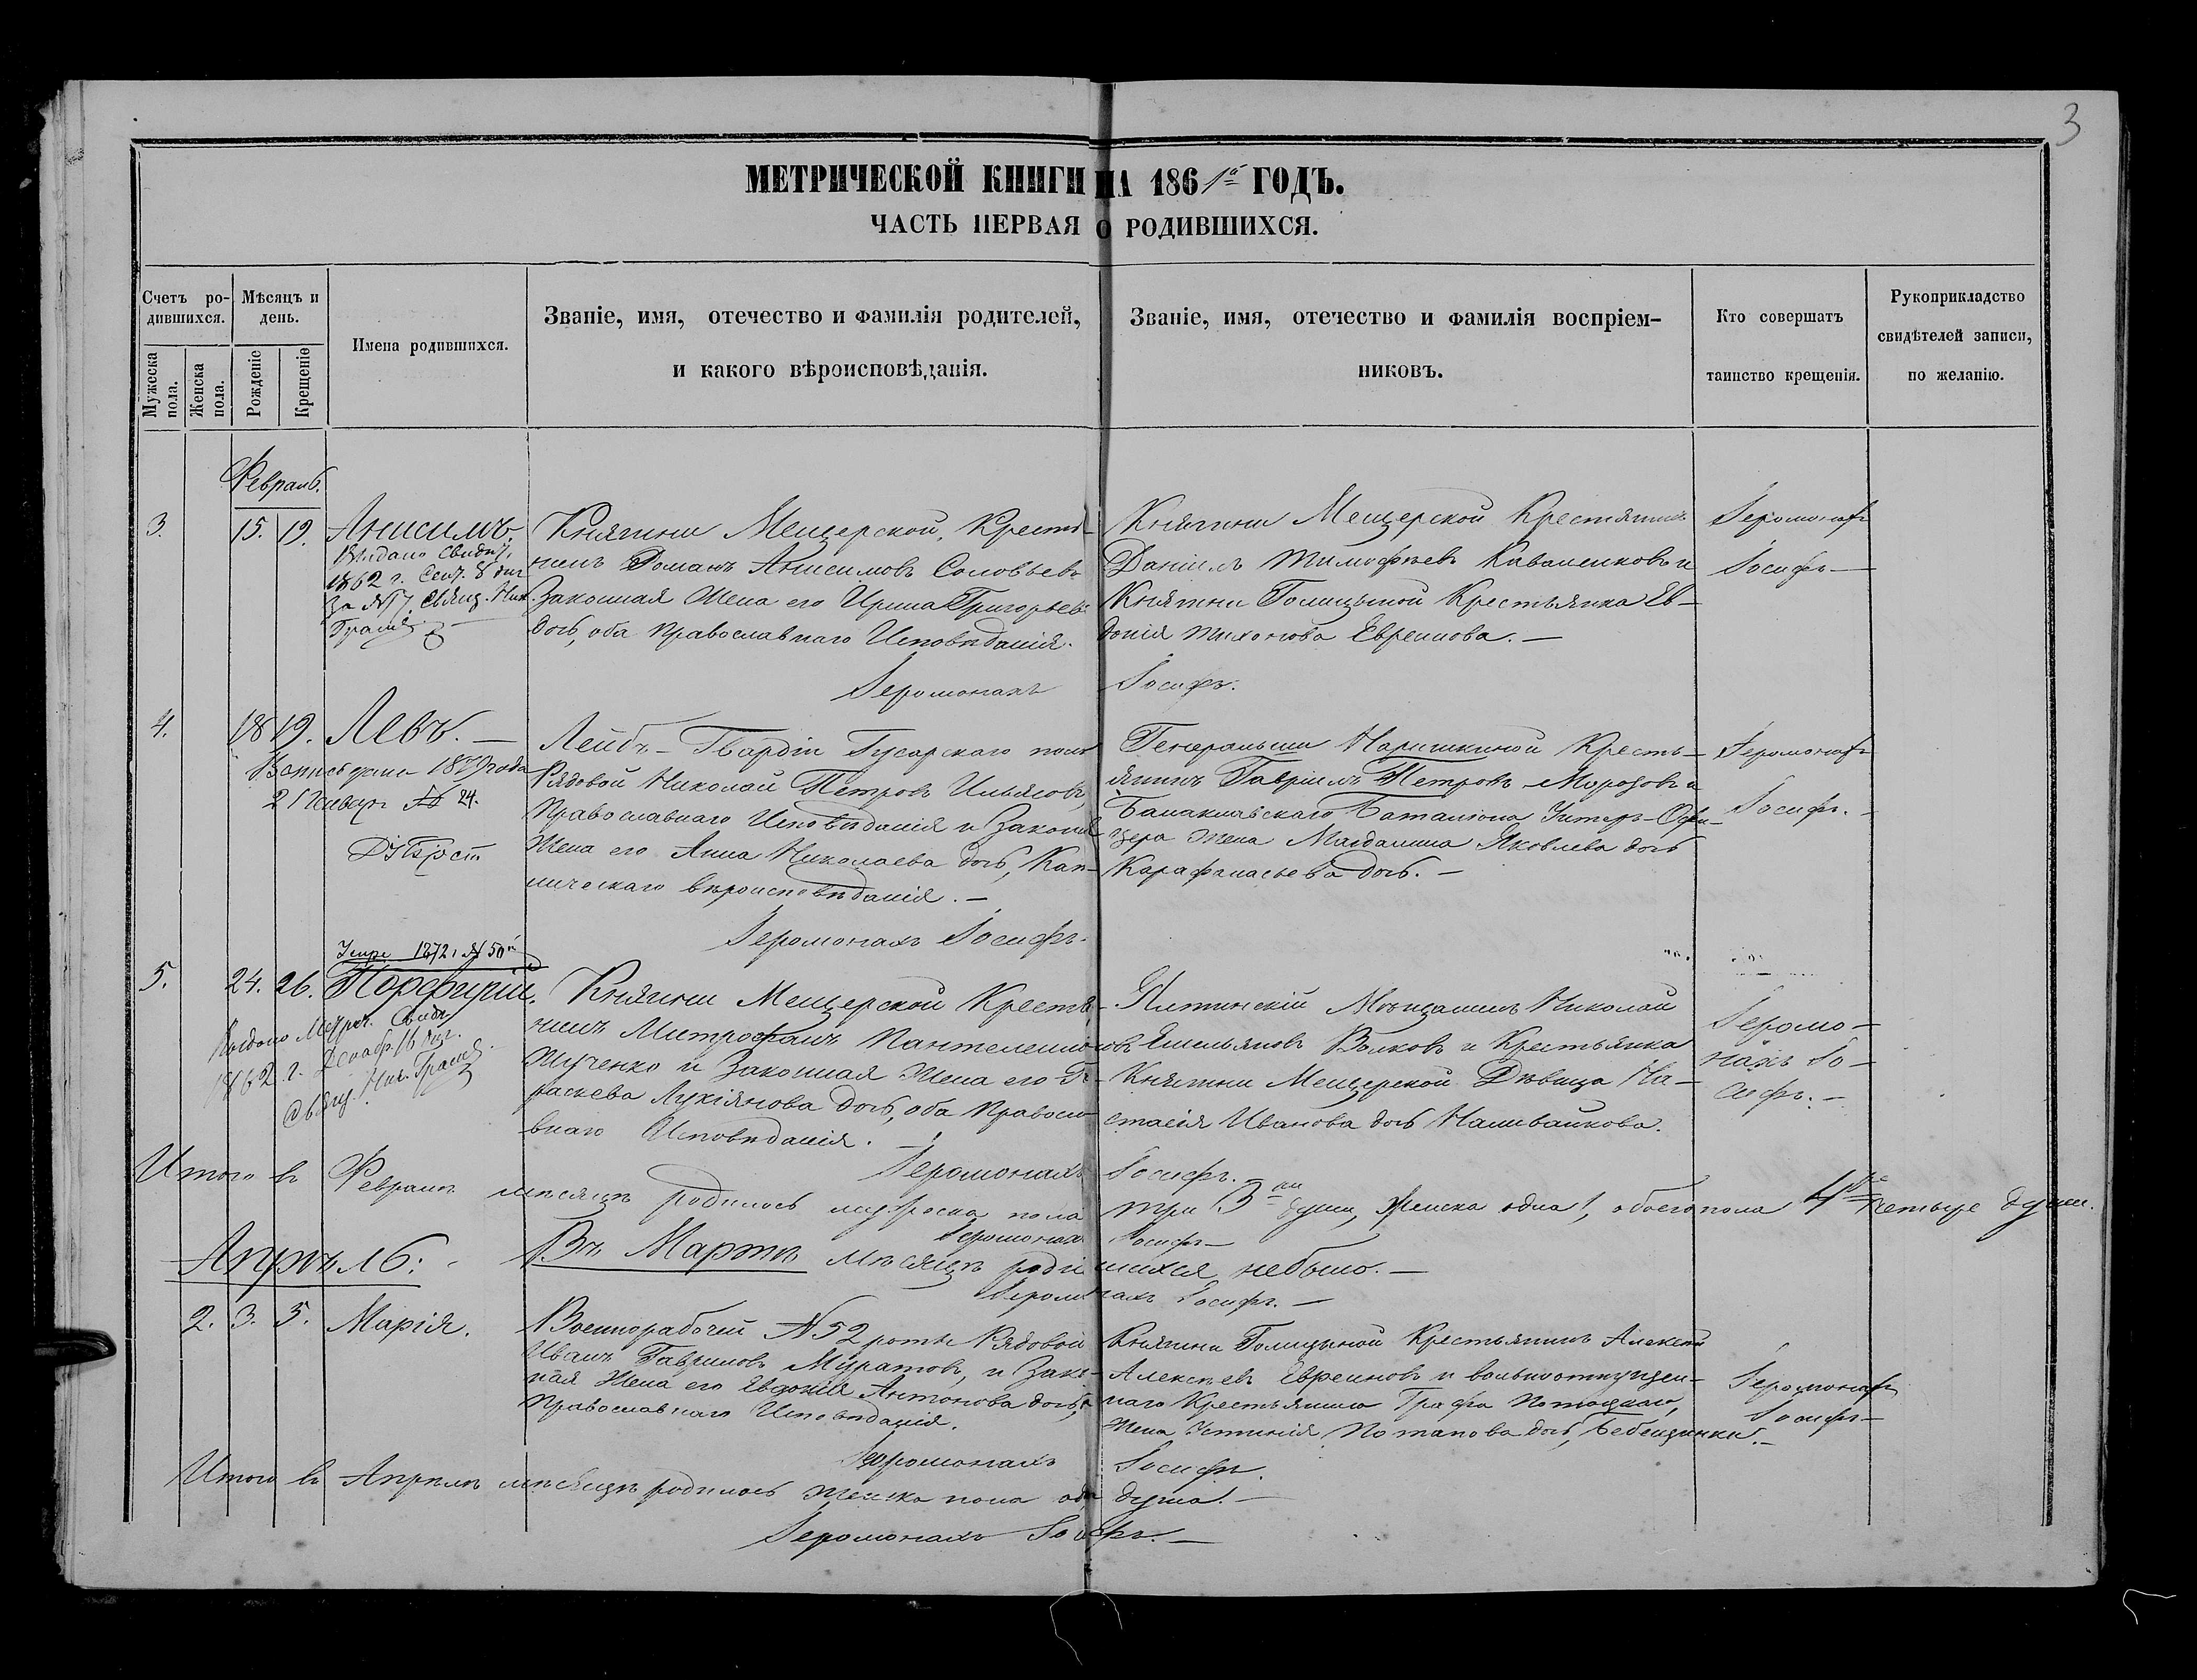 3
МЕТРИЧЕСКОЙ КНИГИ НА 1861й ГОДЪ.
ЧАСТЬ ПЕРВАЯ О РОДИВШИХСЯ.
Счетъ ро-
дившихся.
Мужеска пола.
Женска пола.
Мѣсяцъ и
день.
Рожденіе
Крещеніе
Имена родившихся.
Званіе, имя, отечество и фамилія родителей,
и какого вѣроисповѣданія.
Званіе, имя, отечество и фамилія воспріем-
никовъ.
Кто совершатъ
таинство крещенія.
Рукоприкладство
свидѣтелей записи,
по желанію.
Февраль.
3. 15. 19. Анисимъ.
Выдано Свидѣт.
1862 г. Сент. 8 дня
за №17. Свящ. Ник.
Княгини Мещерской, Крестья-
нинъ Романъ Анисимовъ Соловьевъ
Законная Жена его Ирина Григорьева
дочь, оба Православнаго Исповѣданія.
Княгини Мещерской Крестянинъ
Даніилъ Тимофѣевъ и
Княгини Голицыной Крестьянка Ев-
докія Тихонова Евреинова. —
Іеромонахъ
Іосифъ —
Іеромонахъ Іосифъ.
4. 18 19. Левъ. —
Выпись дана 1879 года
21 Января № 24.
Лейбъ-Гвардіи Гусарскаго полка
Рядовой Николай Петровъ Ильясовъ
Православнаго Исповѣданія и Законная
Жена его Анна Николаева дочь, Като-
лическаго вѣроисповѣданія. —
Генеральши Наришкиной Кресть-
янинъ Гавріилъ Петровъ Морозовъ и
Балаклавскаго Баталіона Унтеръ-Офи-
цера Жена Магдалина Яковлева дочь
Карафнасьева дочь. —
Іеромонахъ
Іосифъ. —
Іеромонахъ Іосифъ.
1872 г № 50й
5. 24. 26. Порфирій.
Выдано Метрич. Свидѣт.
1862 г. Декабр. 16 дня.
Свящ. Ник.
Княгини Мещерской Крестья-
нинъ Митрофанъ Пантелеимо-
и Законная Жена его Па-
раскева Лукіянова дочь, оба Правосла-
внаго Исповѣданія. —
Ялтинскій Мѣщанинъ Николай
Емельяновъ Волковъ и Крестьянка
Княгини Мещерской Дѣвица На-
стасія Иванова дочь Наливайкова.
Іеромо-
нахъ Іо-
сифъ. —
Іеромонахъ Іосифъ.
Итого въ Февралѣ мѣсяцѣ родилось мужеска пола три 3ри души, Женска одна 1, обоего пола 4ре четыре души.
Іеромонахъ Іосифъ —
Апрѣль:
Въ Мартѣ мѣсяцѣ родившихся небыло. —
Іеромонахъ Іосифъ. —
2. 3. 5. Марія.
Военнорабочей №52 роты Рядовой
Иванъ Гавриловъ Муратовъ, и Закон-
ная Жена его Евдокія Антонова дочь,
Православнаго Исповѣданія.
Княгини Голицыной Крестьянинъ Алексѣй
Алексѣевъ Евреиновъ и вольноотпущен-
наго Крестьянина Графа Потоцкаго,
Жена Устинія Потапова дочь,
Іеромонахъ
Іосифъ —
Іеромонахъ Іосифъ.
Итого въ Апрѣлѣ мѣсяцѣ родилось женска пола одна душа. —
Іеромонахъ Іосифъ. —